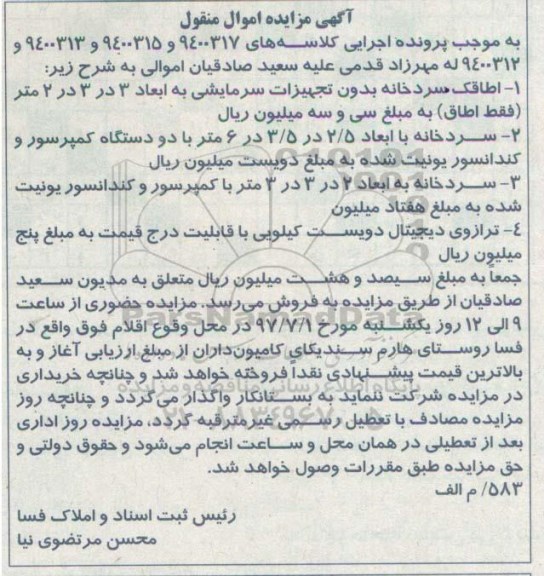 آگهی مزایده اموال منقول
به موجب پرونده اجرایی کلاسه‌های ۹٤۰۰۳۱۷ و ۹٤۰۰۳۱۵ و ۹٤۰۰۳۱۳ و
۹٤۰۰۳۱۲ له مهرزاد قدمی علیه سعید صادقیان اموالی به شرح زیر:
۱- اطاقک سردخانه بدون تجهیزات سرمایشی به ابعاد ۳ در ۳ در ۲ متر
(فقط اطاق) به مبلغ سی و سه میلیون ریال
۲- سردخانه با ابعاد ۲/۵ در ۳/۵ در ۶ متر با دو دستگاه کمپرسور و
کندانسور یونیت شده به مبلغ دویست میلیون ریال
۳- سردخانه به ابعاد ۲ در ۳ در ۳ متر با کمپرسور و کندانسور یونیت
شده به مبلغ هفتاد میلیون
٤- ترازوی دیجیتال دویست کیلویی با قابلیت درج قیمت به مبلغ پنج
میلیون ریال
جمعاً به مبلغ سیصد و هشت میلیون ریال متعلق به مدیون سعید
صادقیان از طریق مزایده به فروش می‌رسد. مزایده حضوری از ساعت
۹ الی ۱۲ روز یکشنبه مورخ ۹۷/۷/۱ در محل وقوع اقلام فوق واقع در
فسا روستای هارم سندیکای کامیون‌داران از مبلغ ارزیابی آغاز و به
بالاترین قیمت پیشنهادی نقداً فروخته خواهد شد و چنانچه خریداری
در مزایده شرکت ننماید به بستانکار واگذار می‌گردد و چنانچه روز
مزایده مصادف با تعطیل رسمی غیرمترقبه گردد، مزایده روز اداری
بعد از تعطیلی در همان محل و ساعت انجام می‌شود و حقوق دولتی و
حق مزایده طبق مقررات وصول خواهد شد.
۵۸۳/ م الف
رئیس ثبت اسناد و املاک فسا
محسن مرتضوی نیا
ParsNamadData
پایگاه اطلاع رسانی مناقصه و مزایده